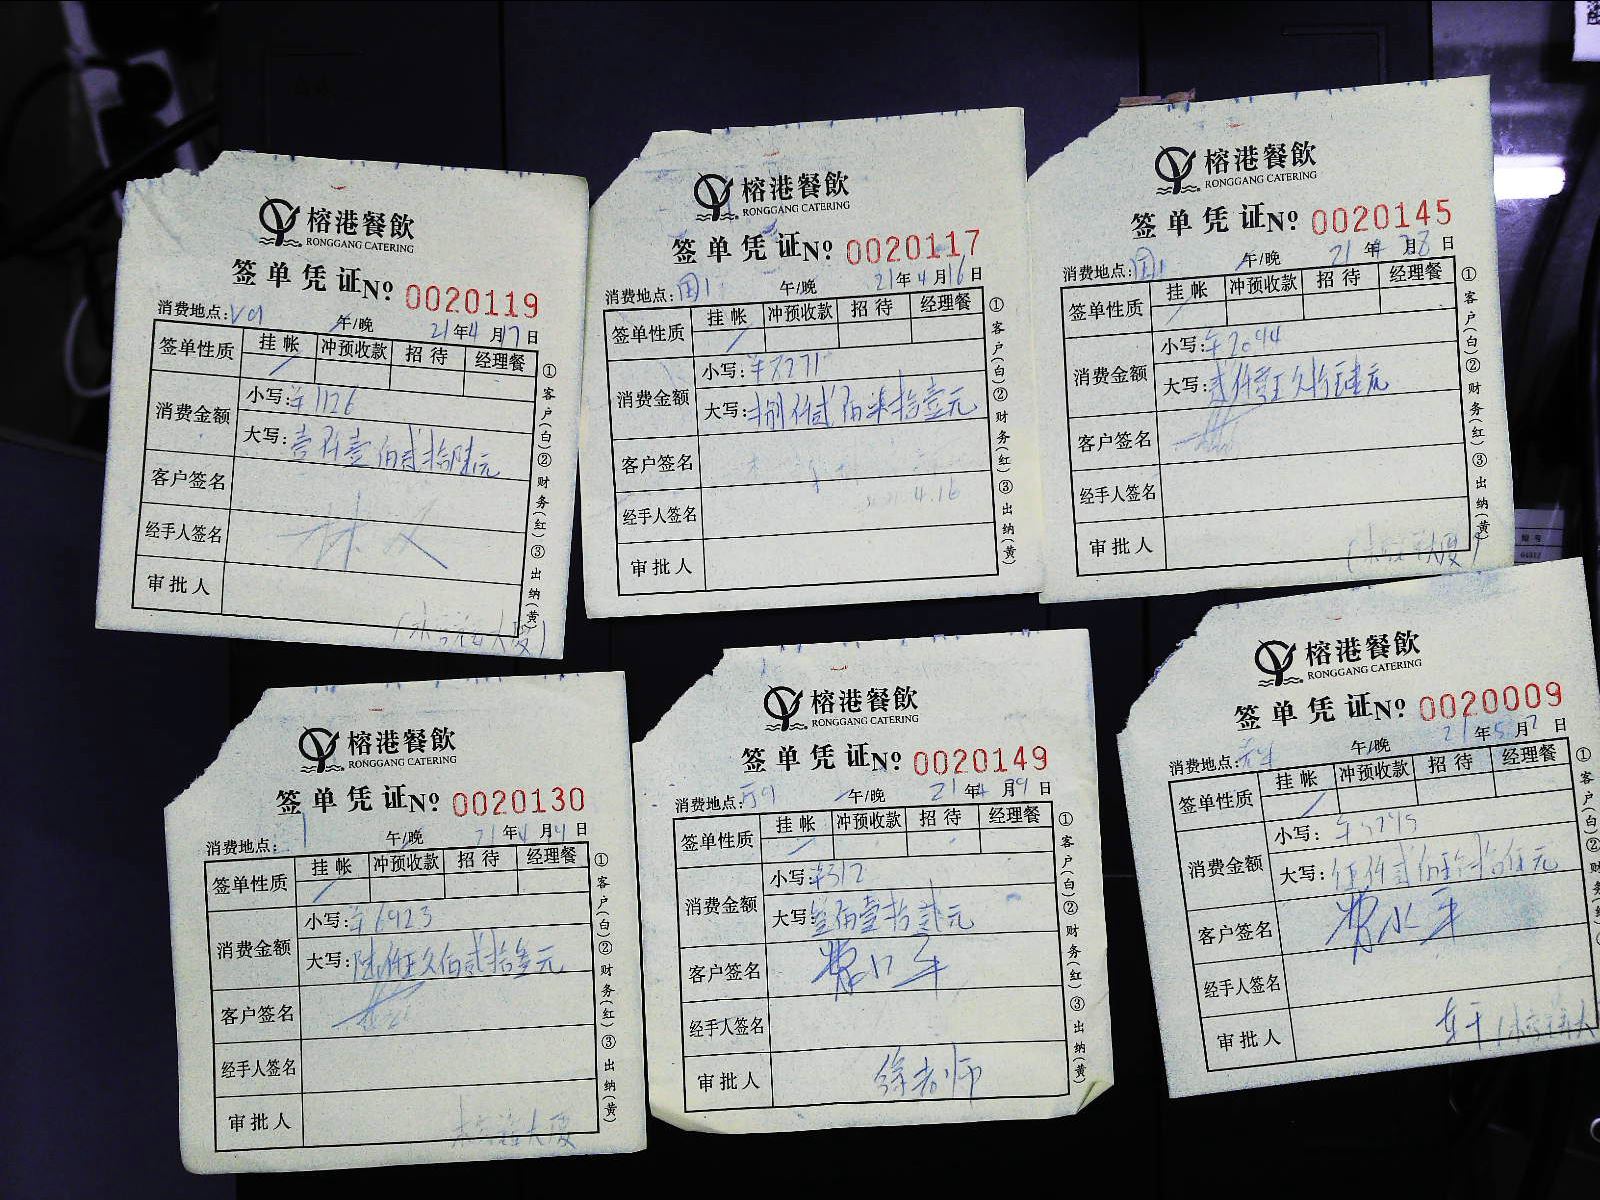 榕港餐飲
RONGGANG CATERING
签单凭证 Nº 0020119
消费地点: 午/晚 21年4月17日
签单性质 挂帐 冲预收款 招待 经理餐
消费金额 小写:¥1126
大写:壹仟壹佰贰拾陆元
客户签名
经手人签名
审批人
①客户(白)②财务(红)③出纳(黄)
榕港餐飲
RONGGANG CATERING
签单凭证 Nº 0020117
消费地点: 午/晚 21年4月16日
签单性质 挂帐 冲预收款 招待 经理餐
消费金额 小写:
大写:捌仟贰佰柒拾壹元
客户签名
4.16
经手人签名
审批人
①客户(白)②财务(红)③出纳(黄)
榕港餐飲
RONGGANG CATERING
签单凭证 Nº 0020145
消费地点: 午/晚 21年 月 日
签单性质 挂帐 冲预收款 招待 经理餐
消费金额 小写:¥2094
大写:贰仟零玖拾肆元
客户签名
经手人签名
审批人
大厦)
①客户(白)②财务(红)③出纳(黄)
榕港餐飲
RONGGANG CATERING
签单凭证 Nº 0020130
消费地点: 午/晚 21年4月 日
签单性质 挂帐 冲预收款 招待 经理餐
消费金额 小写:¥6923
大写:陆仟玖佰贰拾叁元
客户签名
经手人签名
审批人
大厦
①客户(白)②财务(红)③出纳(黄)
榕港餐飲
RONGGANG CATERING
签单凭证 Nº 0020149
消费地点: 午/晚 21年4月 日
签单性质 挂帐 冲预收款 招待 经理餐
消费金额 小写:¥312
大写:叁佰壹拾贰元
客户签名
经手人签名
审批人 徐老师
①客户(白)②财务(红)③出纳(黄)
榕港餐飲
RONGGANG CATERING
签单凭证 Nº 0020009
消费地点: 午/晚 21年5月2日
签单性质 挂帐 冲预收款 招待 经理餐
消费金额 小写:
大写:伍仟贰佰
客户签名
经手人签名
审批人
①客户(白)②